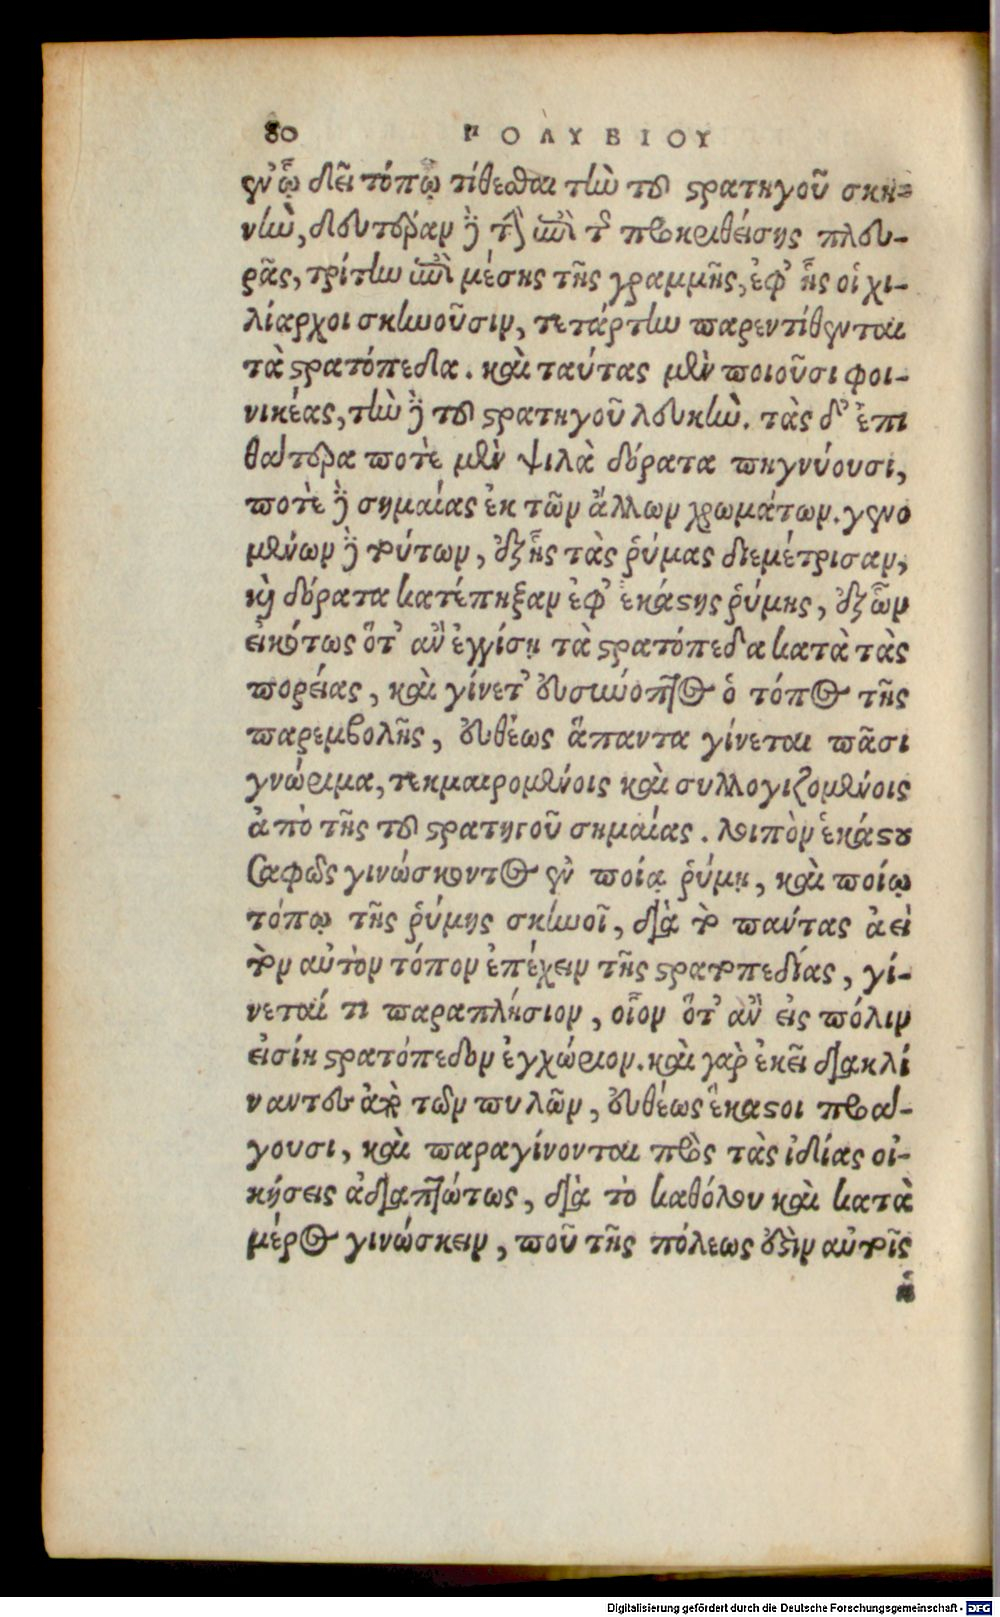 80 ΠΟΛΥΒΙΟΥ
ἐν ᾧ δεῖ τόπῳ τίθεσθαι τὴν τοῦ στρατηγοῦ σκη-
νὴν, δευτέραν δὲ τὴν ἐπὶ τῆς προκριθείσης πλευ-
ρᾶς, τρίτην ἐπὶ μέσης τῆς γραμμῆς, ἐφ' ἧς οἱ χι-
λίαρχοι σκηνοῦσιν, τετάρτην παρεντίθενται
τὰ στρατόπεδα. καὶ ταύτας μὲν ποιοῦσι φοι-
νικέας, τὴν δὲ τοῦ στρατηγοῦ λευκὴν. τὰς δ' ἐπι
θάτερα ποτὲ μὲν ψιλὰ δόρατα πηγνύουσι,
ποτὲ δὲ σημαίας ἐκ τῶν ἄλλων χρωμάτων. γενο
μένων δὲ τούτων, ἑξῆς τὰς ῥύμας διεμέτρισαν,
καὶ δόρατα κατέπηξαν ἐφ' ἑκάστης ῥύμης, ἐξ ὧν
εἰκότως ὅτ' ἂν ἐγγίσῃ τὰ στρατόπεδα κατὰ τὰς
πορείας, καὶ γίνετ' εὐσύνοπτος ὁ τόπος τῆς
παρεμβολῆς, εὐθέως ἅπαντα γίνεται πᾶσι
γνώριμα, τεκμαιρομένοις καὶ συλλογιζομένοις
ἀπὸ τῆς τοῦ στρατηγοῦ σημαίας. λοιπὸν ἑκάστου
σαφῶς γινώσκοντος ἐν ποίᾳ ῥύμῃ, καὶ ποίῳ
τόπῳ τῆς ῥύμης σκηνοῖ, διὰ τὸ πάντας ἀεὶ
τὸν αὐτὸν τόπον ἐπέχειν τῆς στρατοπεδίας, γί-
νεταί τι παραπλήσιον, οἷον ὅτ' ἂν εἰς πόλιν
εἰσίῃ στρατόπεδον ἐγχώριον. καὶ γὰρ ἐκεῖ διακλί
ναντες ἀπὸ τῶν πυλῶν, εὐθέως ἕκαστοι προά-
γουσι, καὶ παραγίνονται πρὸς τὰς ἰδίας οἰ-
κήσεις ἀδιαπτώτως, διὰ τὸ καθόλου καὶ κατὰ
μέρος γινώσκειν, ποῦ τῆς πόλεως ἐστὶν αὐτοῖς
ἡ
Digitalisierung gefördert durch die Deutsche Forschungsgemeinschaft - DFG